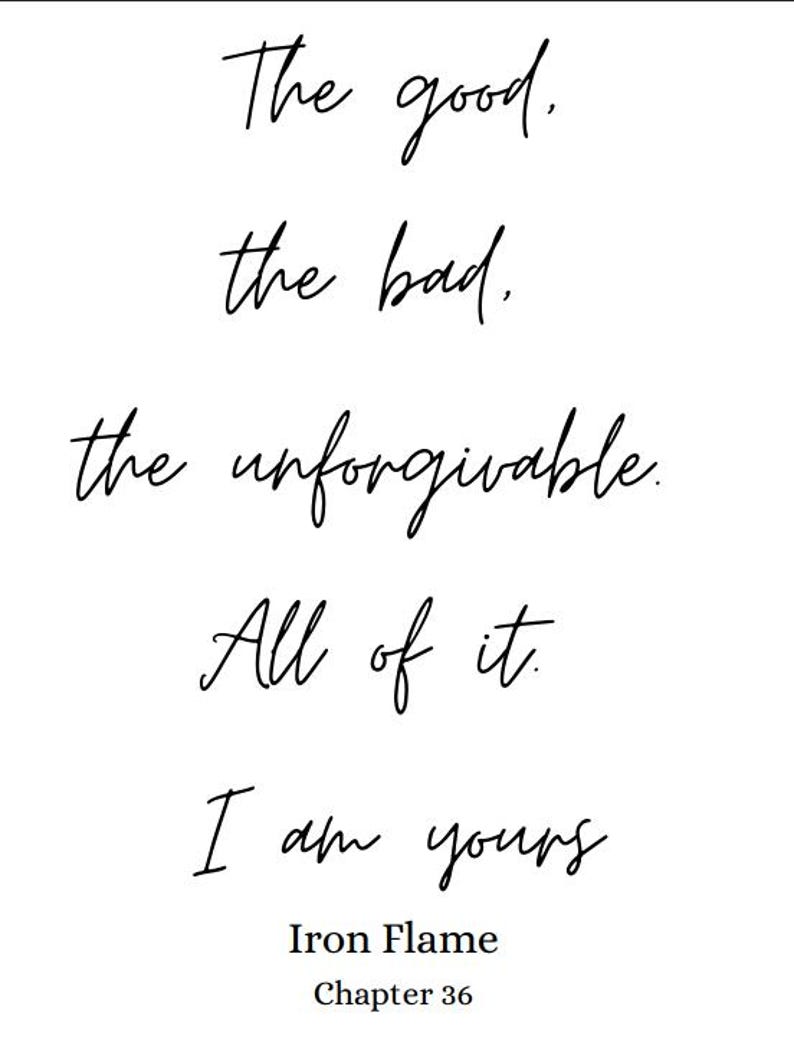 The good,
the bad,
the unforgivable.
All of it.
I am yours
Iron Flame
Chapter 36